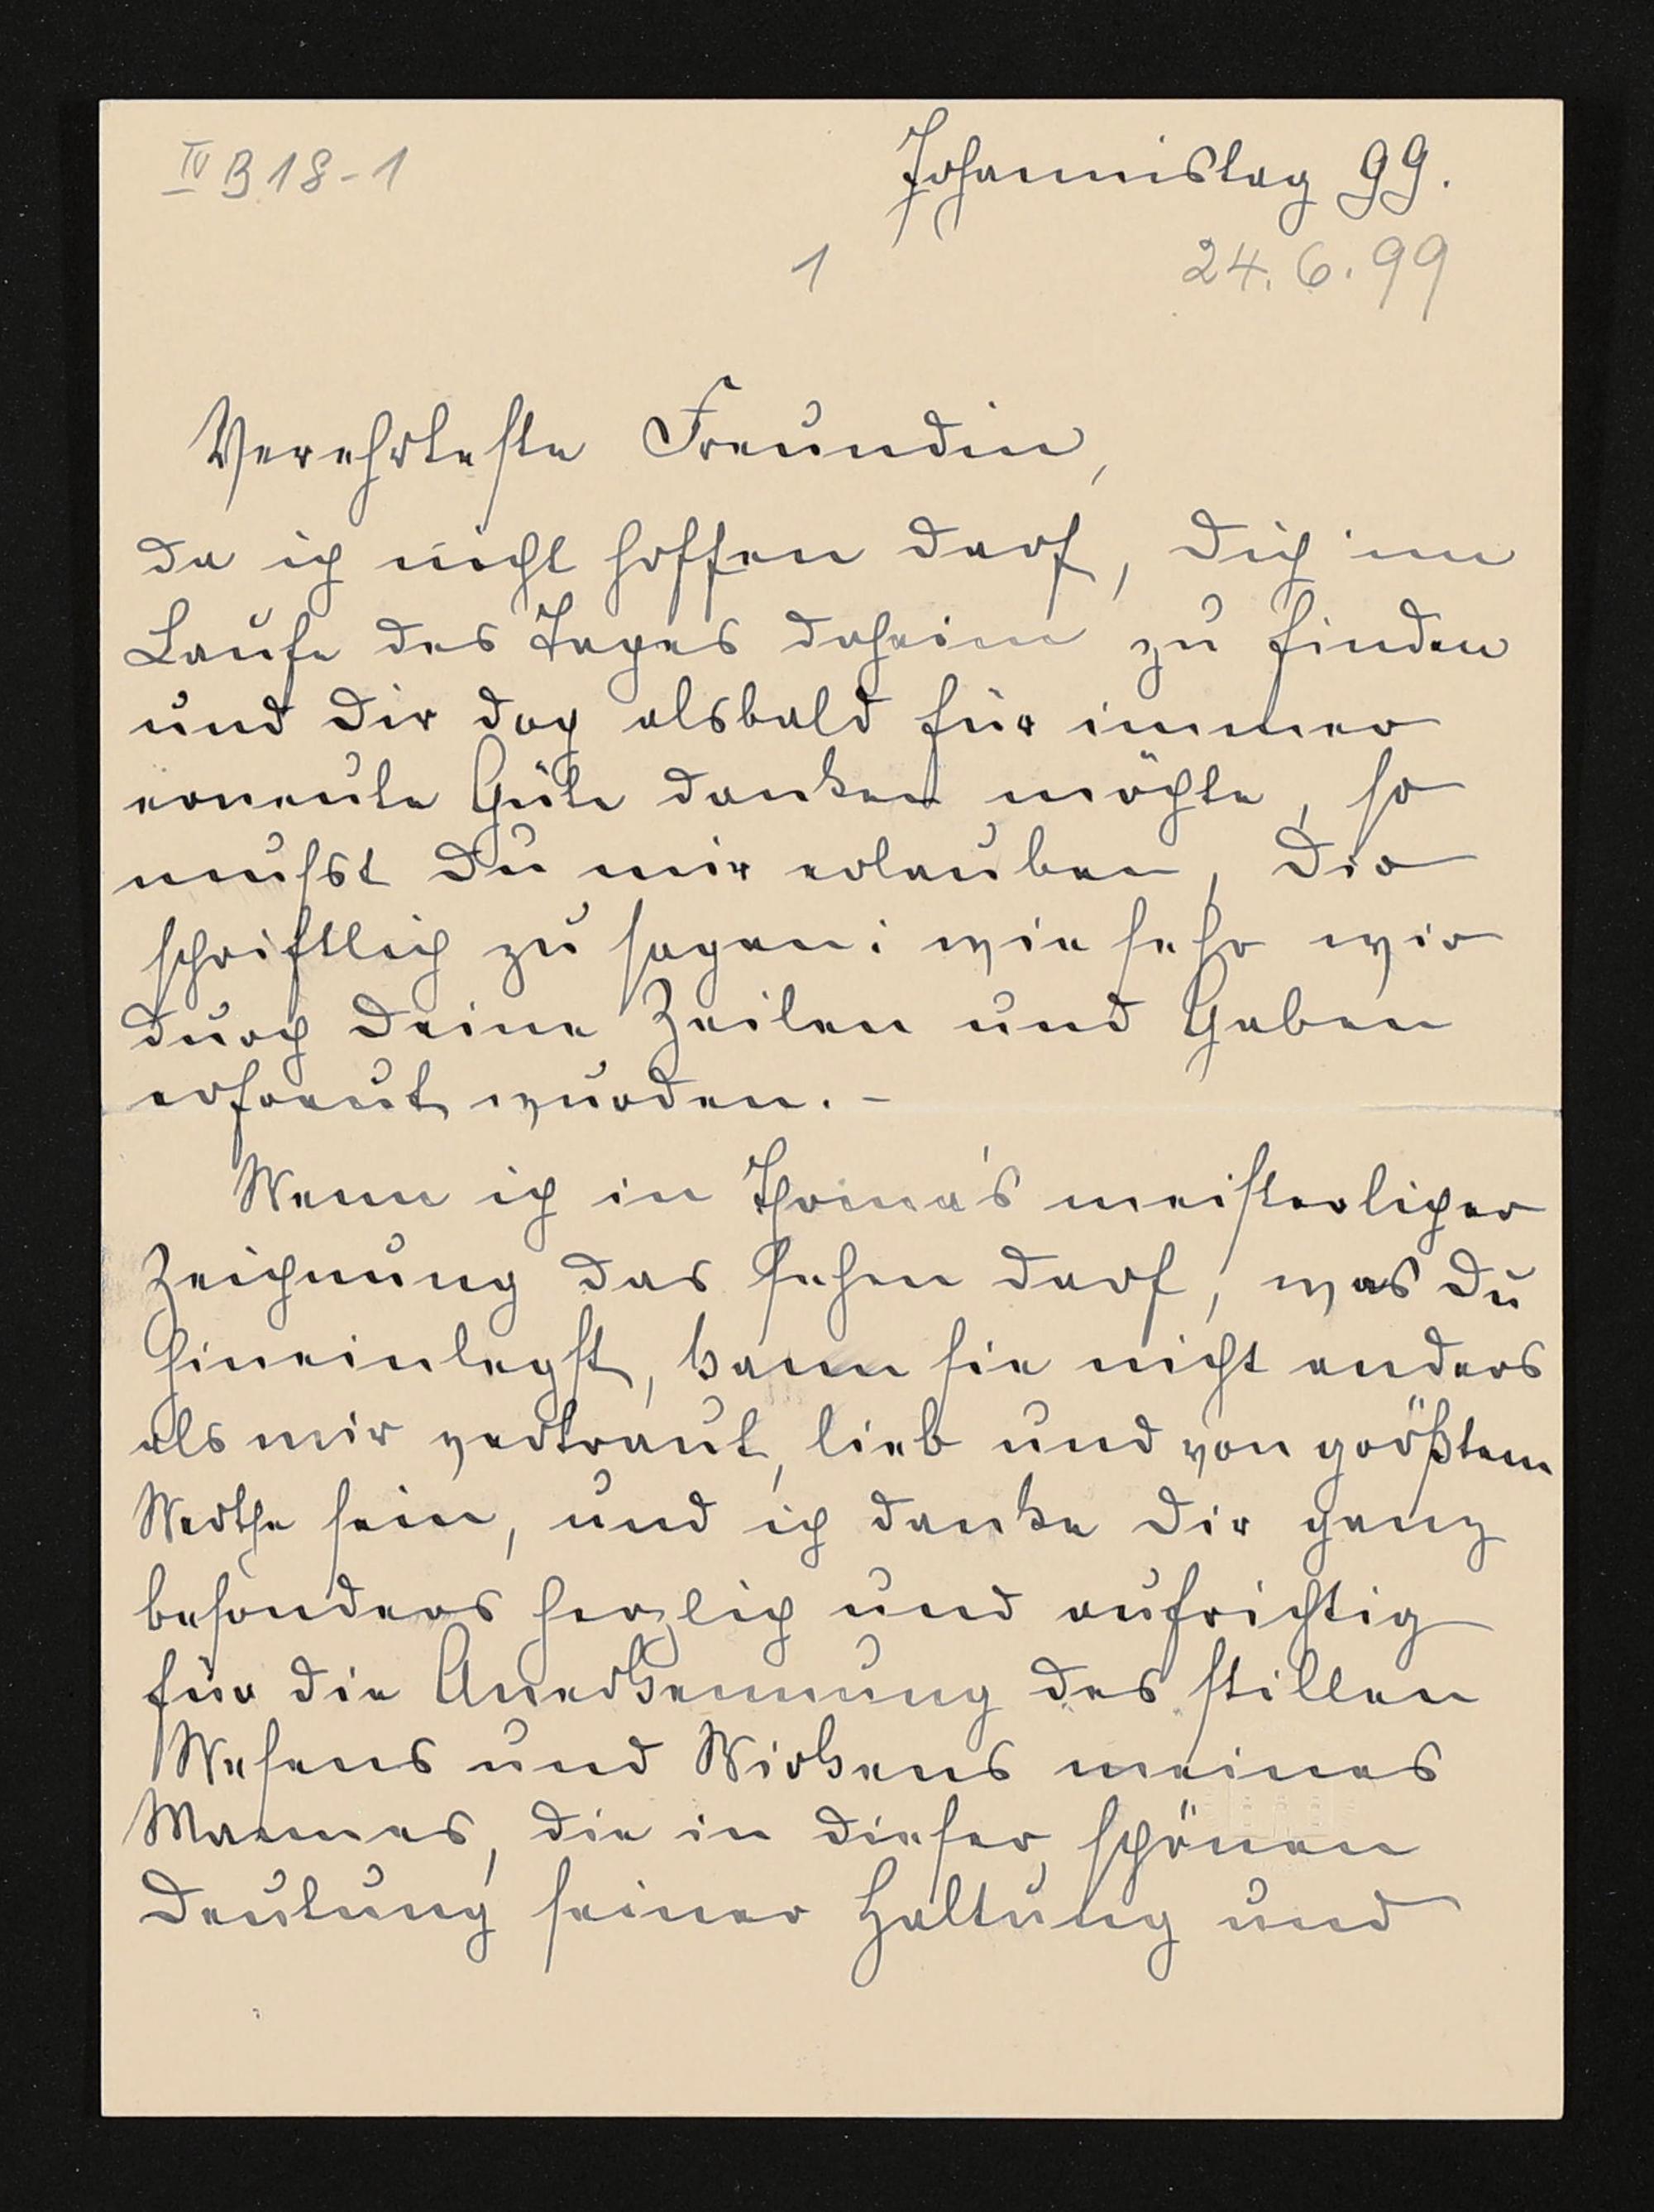 IV B 18-1
Johannistag 99.
1
24.6.99
Verehrteste Freundin,
da ich nicht hoffen darf, Dich im
Laufe des Tages daheim zu finden
und Dir doch alsbald für immer
erneute Güte danken möchte, so
mußst Du mir erlauben, Dir
schriftlich zu sagen: wie sehr wir
durch Deine Zeilen und Gaben
erfreut wurden. –
Wenn ich in Thoma's meisterlicher
Zeichnung das sehen darf, was Du
hineinlegst, kann sie nicht anders
als mir vertraut, lieb und von größtem
Werthe sein, und ich danke Dir ganz
besonders herzlich und aufrichtig
für die Anerkennung des stillen
Wesens und Wirkens meines
Mannes, die in dieser, schönen
Deutung seiner Haltung und